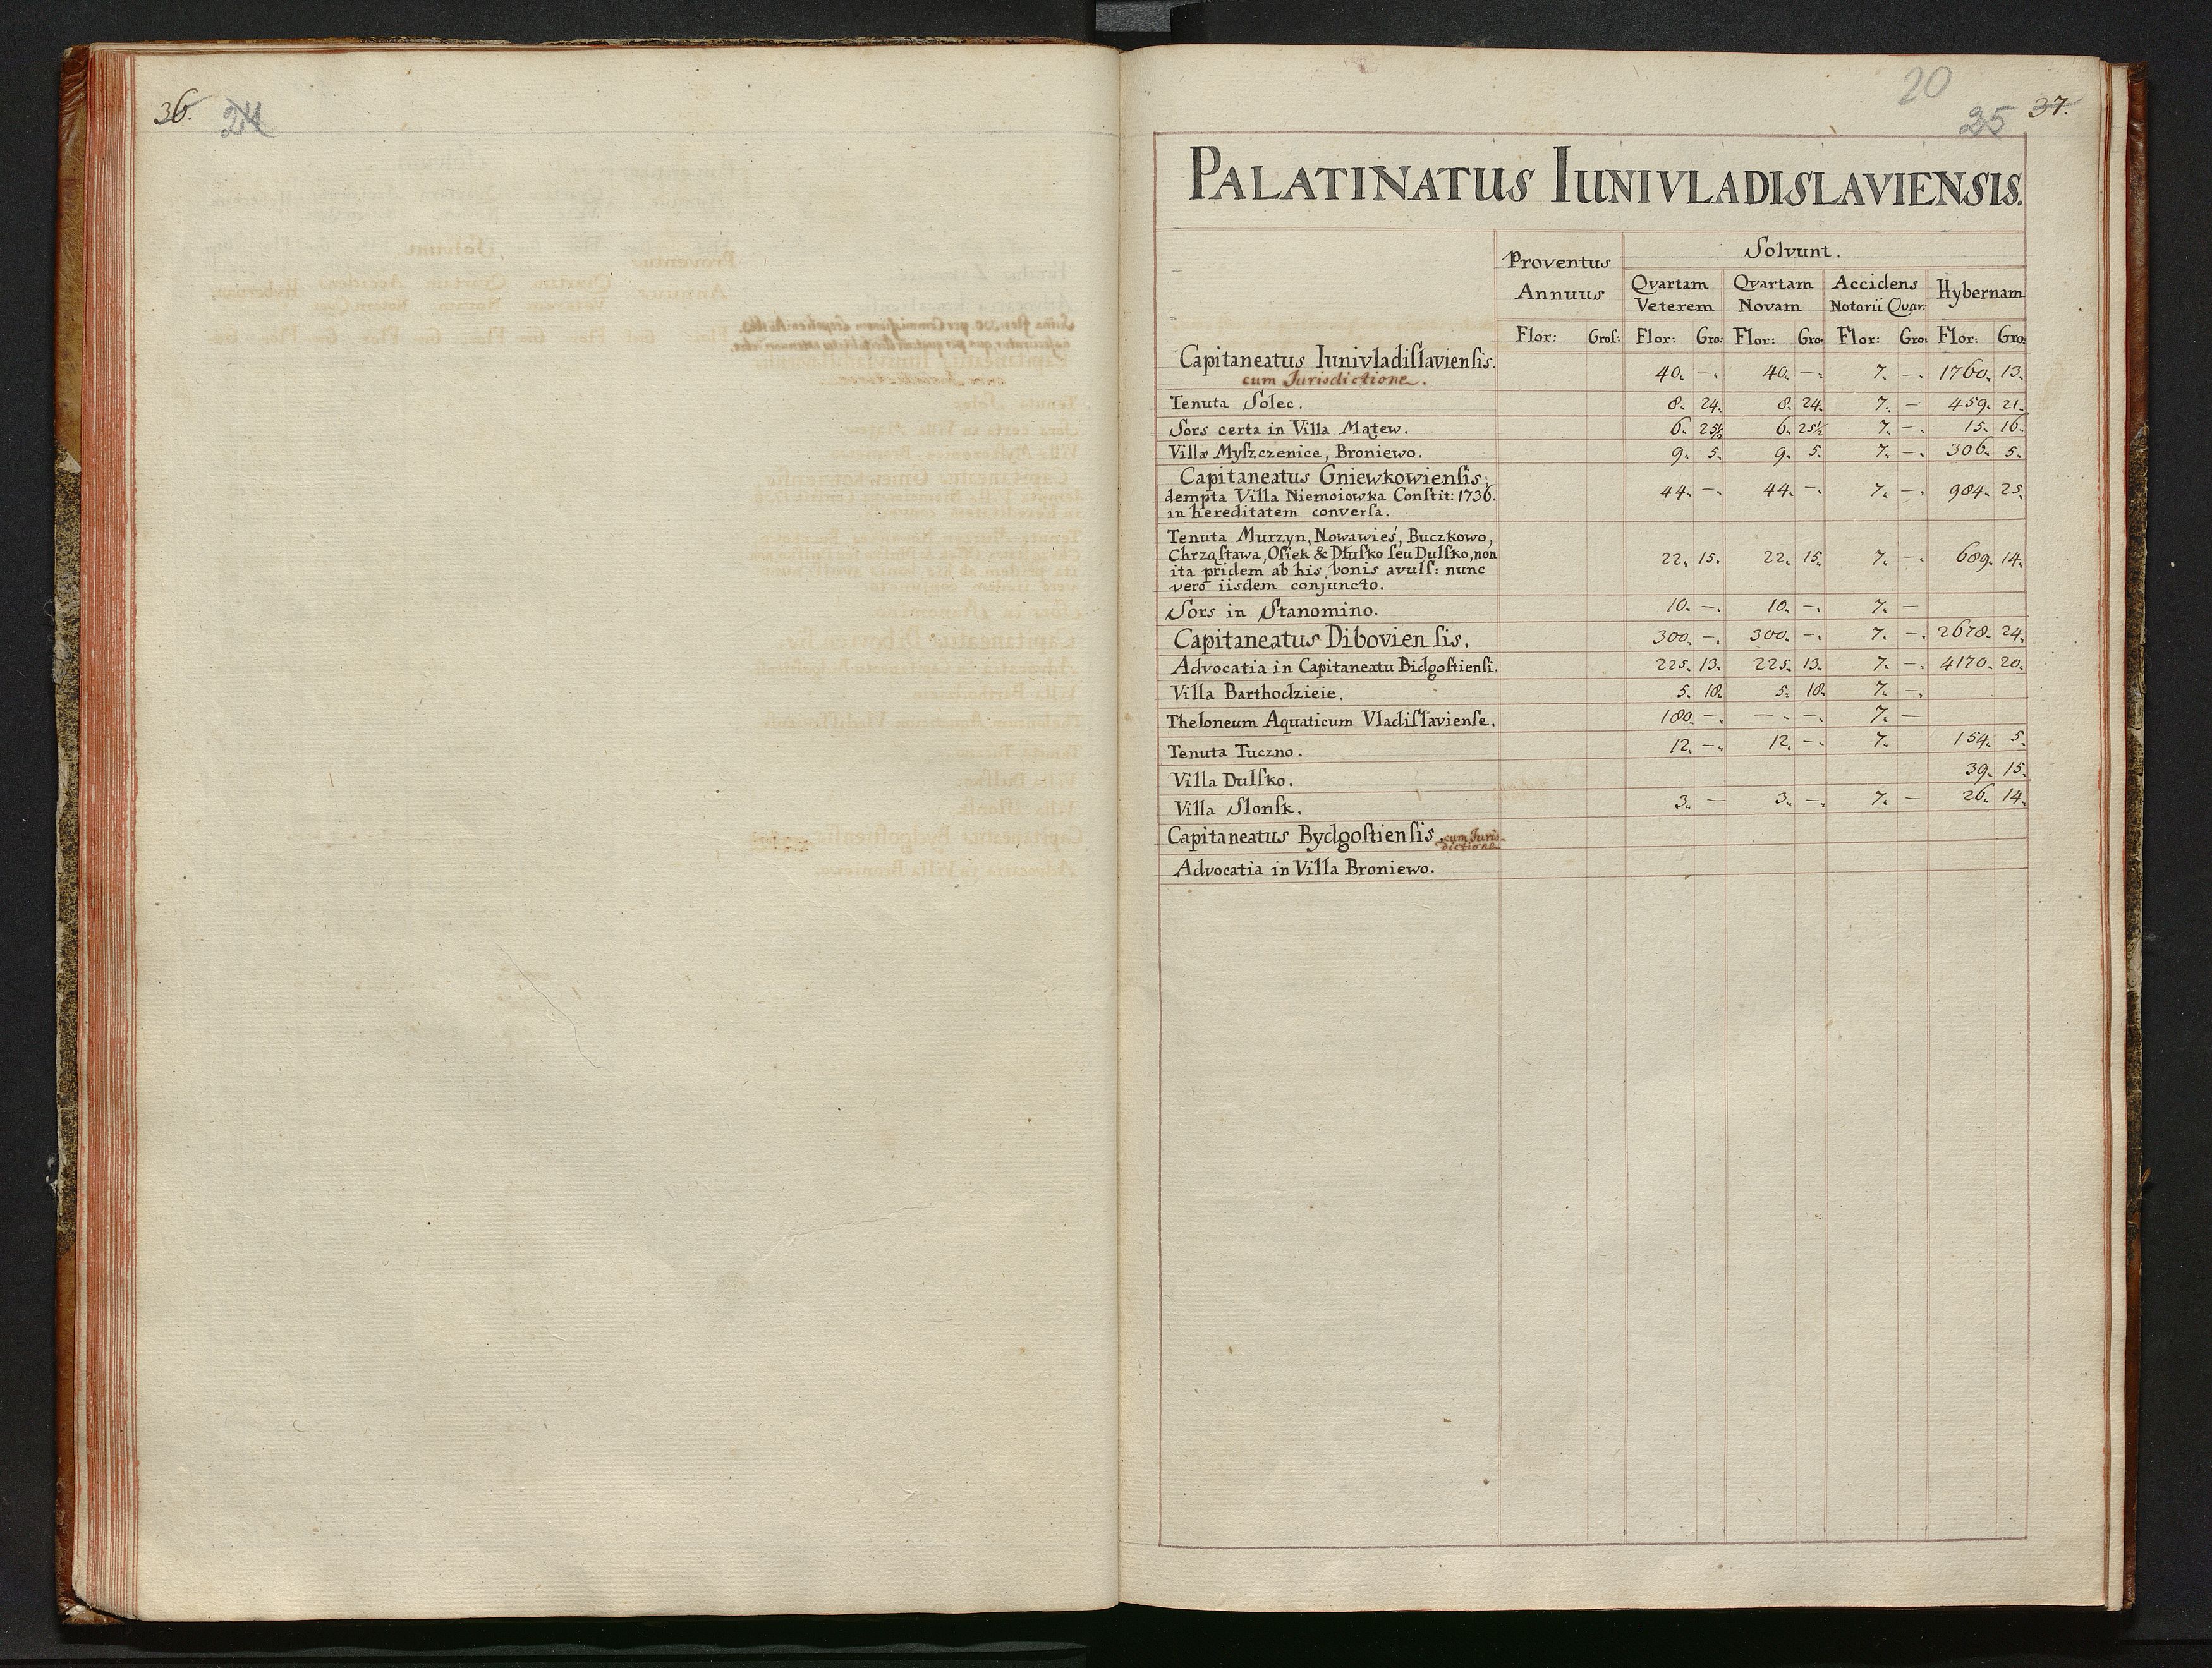 36. 24
20
25 37.
PALATINATUS IUNIVLADISLAVIENSIS.
Proventus Annuus
Solvunt.
Qvartam Veterem
Qvartam Novam
Accidens Notarii Quar:
Hybernam
Flor: Groſ: Flor: Gro: Flor: Gro: Flor: Gro: Flor: Gro:
Capitaneatus Iunivladiſlavienſis.
cum Jurisdictione. 40. -. 40. -. 7. -. 1760. 13.
Tenuta Solec. 8. 24. 8. 24. 7. - 459. 21.
Sors certa in Villa Mątew. 6. 25½ 6. 25½ 7. -. 15. 16.
Villæ Myſzczenice, Broniewo. 9. 5. 9. 5. 7. -. 306. 5.
Capitaneatus Gniewkowienſis,
dempta Villa Niemoiowka Conſtit: 1736. 44. -. 44. -. 7. -. 984. 25.
in hereditatem converſa.
Tenuta Murzyn, Nowawieś, Buczkowo,
Chrząſtawa, Oſiek & Dłuſko ſeu Dulſko, non
ita pridem ab his bonis avulſ: nunc 22. 15. 22. 15. 7. -. 689. 14.
vero iisdem conjuncto.
Sors in Stanomino. 10. -. 10. -. 7. -
Capitaneatus Dibovienſis. 300. -. 300. -. 7. -. 2678. 24.
Advocatia in Capitaneatu Bidgoſtienſi. 225. 13. 225. 13. 7. -. 4170. 20.
Villa Barthodzieie. 5. 18. 5. 18. 7. -.
Theloneum Aquaticum Vladiſlavienſe. 180. -. -. -. 7. -
Tenuta Tuczno. 12. -. 12. -. 7. 154. 5.
Villa Dulſko. 39. 15.
Villa Slonſk. 3. - 3. -. 7. - 26. 14.
Capitaneatus Bydgoſtienſis cum Juris-
dictione
Advocatia in Villa Broniewo.